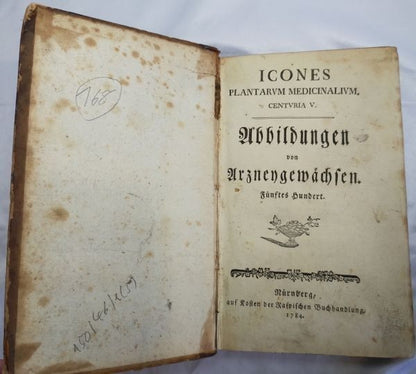 768
ICONES
PLANTARVM MEDICINALIVM,
CENTVRIA V.
Abbildungen
von
Arzneygewächsen.
Fünftes Hundert.
Nürnberg,
auf Kosten der Raspischen Buchhandlung,
1784.